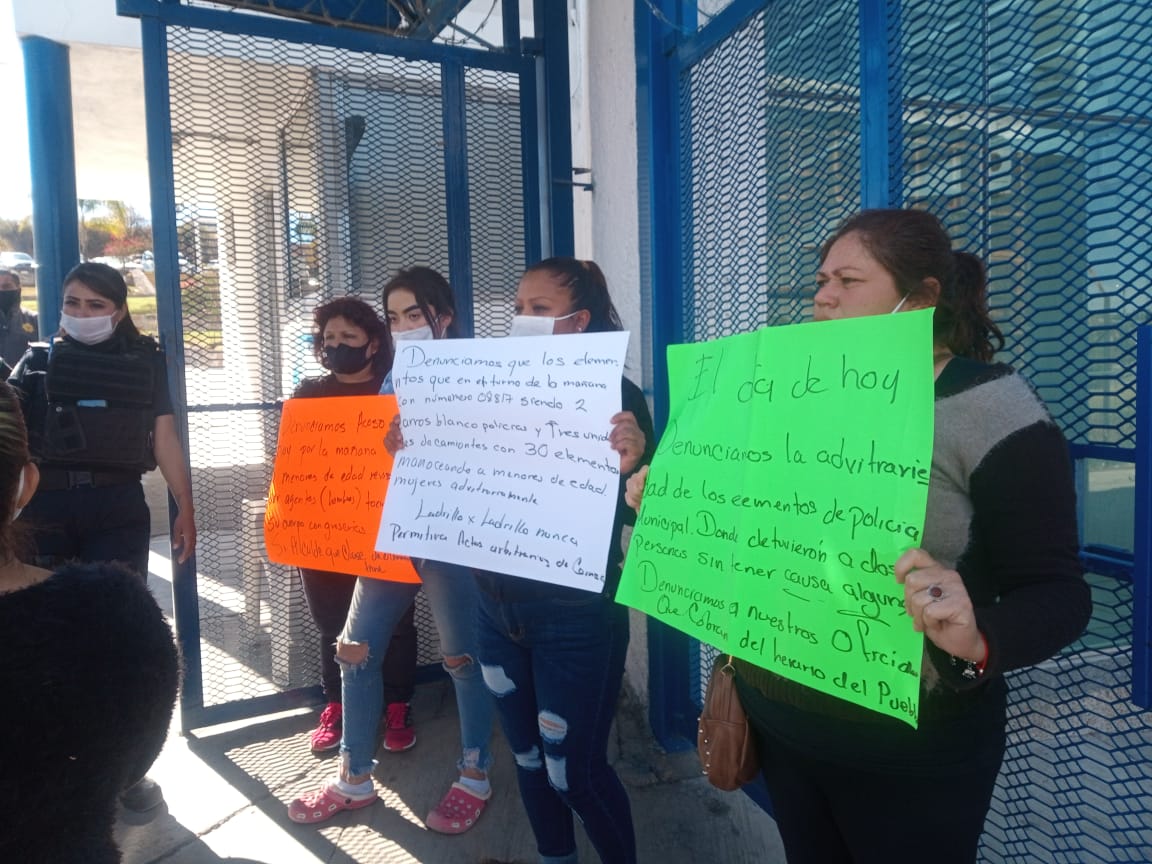 Denunciamos Acoso
hoy por la mañana
menores de edad
agentes (hombres)
Su cuerpo con groserias
Sr Alcalde que Clase de
tiene
Denunciamos que los elemen
ntos que en el turno de la mañana
con numarero 08817 siendo 2
carros blanco policras y tres unida
des de camiontes con 30 elementos
manoceando a menores de edad.
mujeres advitrariamente
Ladrillo x Ladrillo nunca
Permitira Actos arbitrarios de
El dia de hoy
Denunciamos la advitrarie
dad de los eementos de policia
Municipal. Donde detuvieron a dos
Personas sin tener causa alguna
Denunciamos a nuestros
Que Cobran del herario del Pueblo